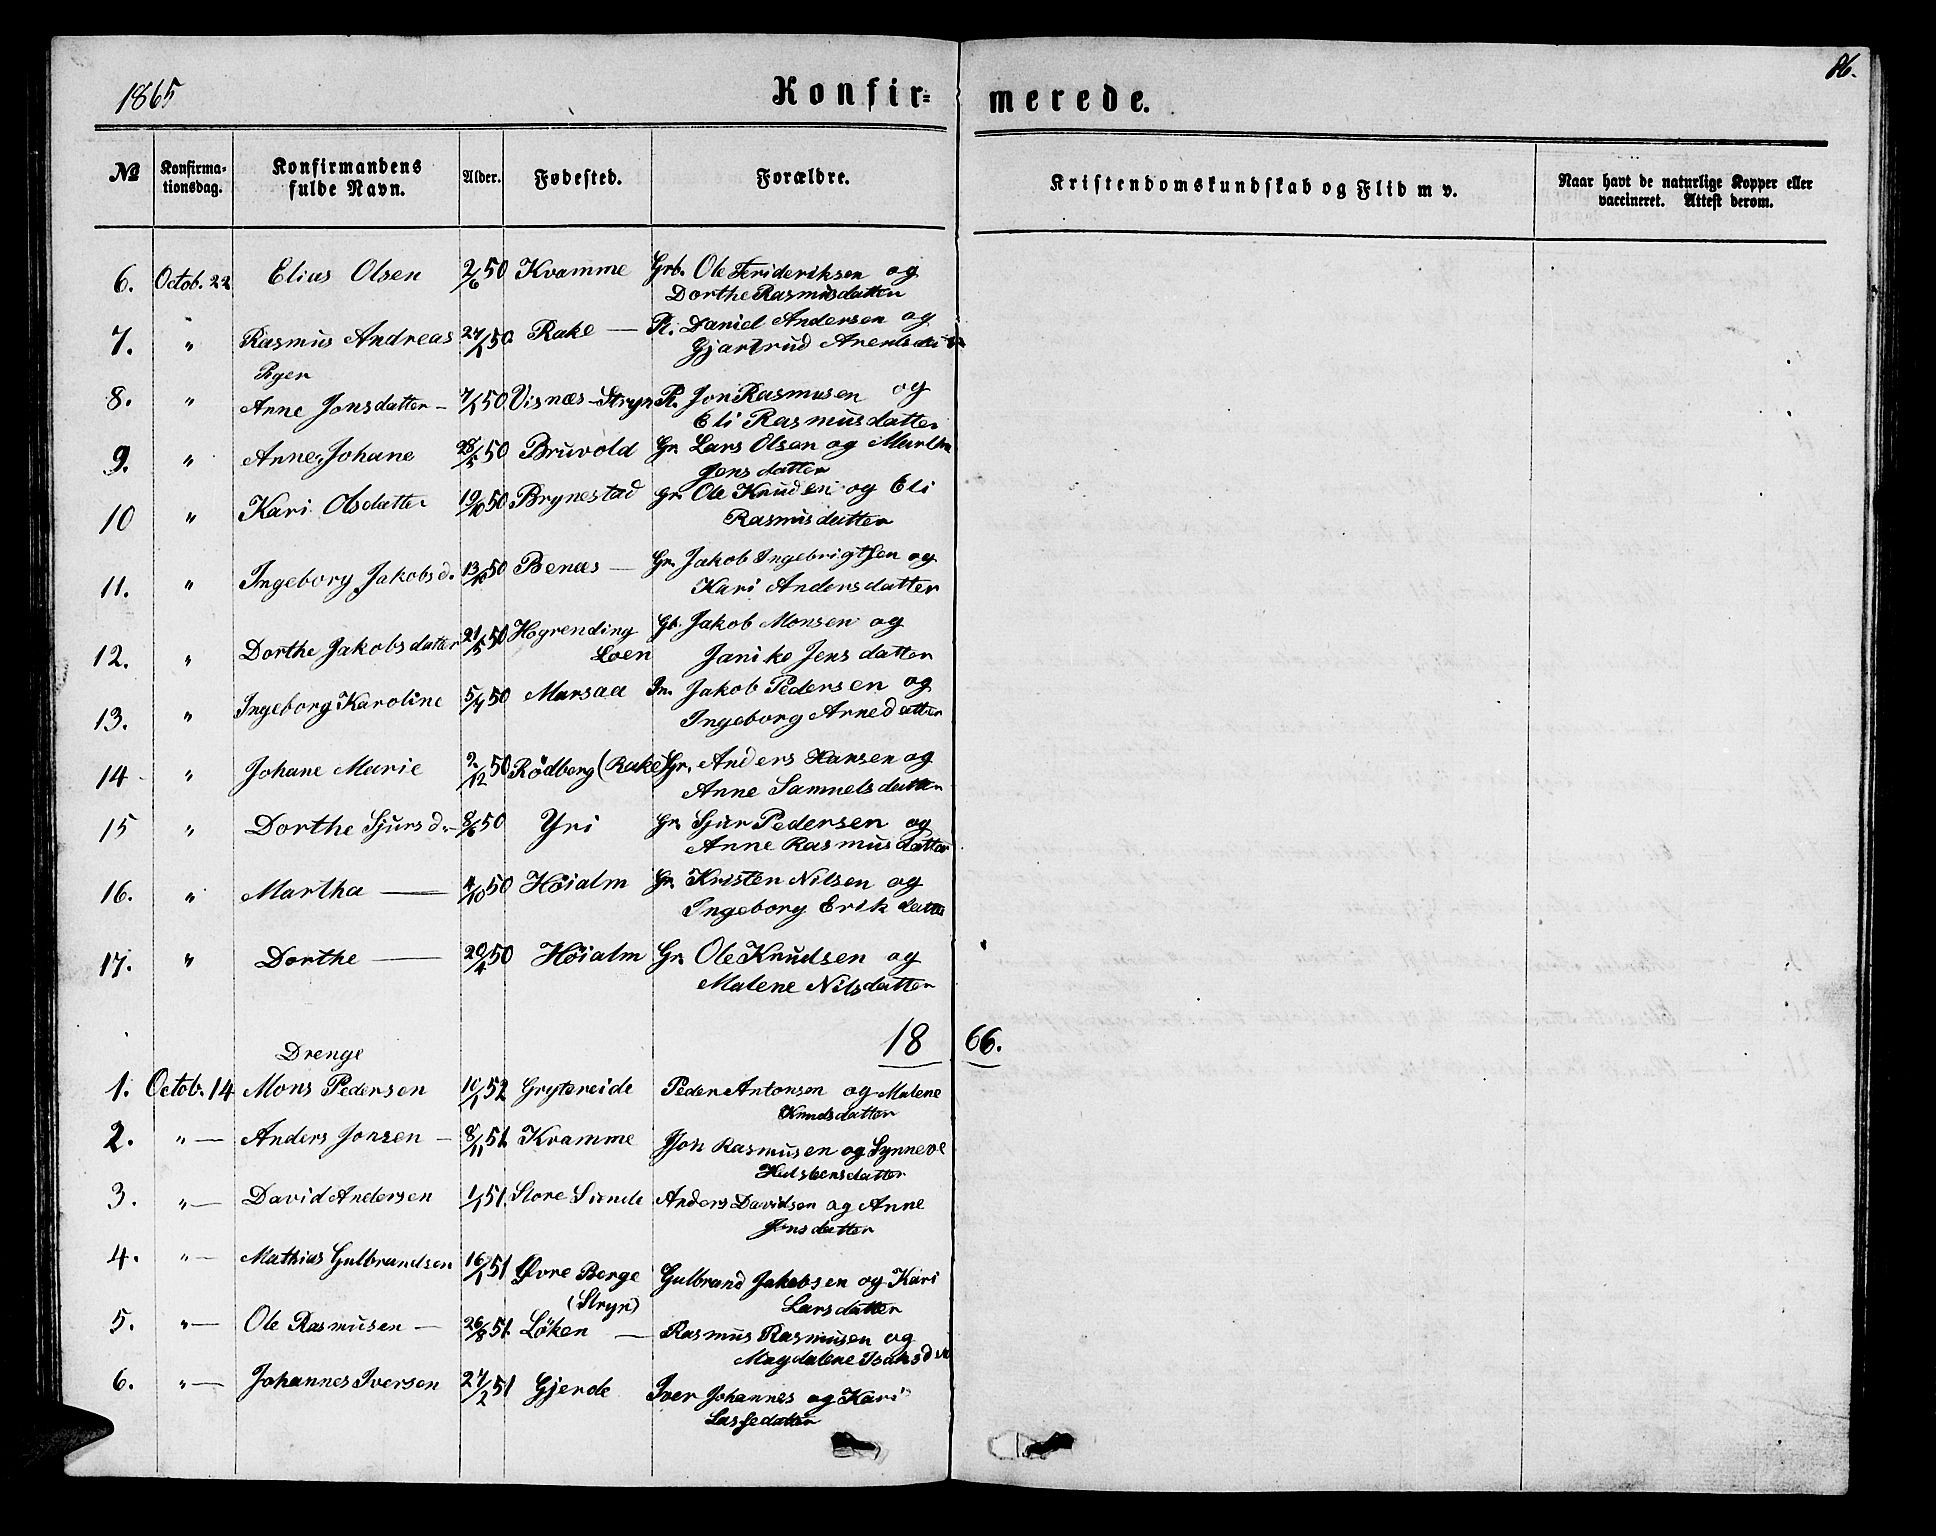 1865
Konfir=
merede.
86.
№
Konfirma-
tionsdag.
Konfirmandens
fulde Navn.
Alder.
Fødested.
Forældre.
Kristendomskundskab og Flid m v.
Naar havt de naturlige Kopper eller
vaccineret. Attest derom.
6. Octob. 22 Elias Olsen 2/6 50 Kvamme Grb. Ole Frideriksen og
Dorthe Rasmusdatter
7. " Rasmus Andreas 27/1 50. Rake — Pl. Daniel Andersen og
Gjartrud
Piger
8. " Anne Jonsdatter - 7/1 50 Visnæs - Stryn Pl. Jon Rasmusen og
Eli Rasmusdatter
9. " Anne Johane 28/5 50 Bruvold Gr. Lars Olsen og Marthe
Jensdatter
10 " Kari Olsdatter 19/10 50 Brynestad Gr. Ole Knudsen og Eli
Rasmusdatter
11. " Ingeborg Jakobsd. 13/10 50 Benæs — Gr. Jakob Ingebrigtsen og
Kari Andersdatter
12. " Dorthe Jakobsdatter 21/5 50 Hogrending Gb. Jakob Monsen og
Loen Janike Jensdatter
13. " Ingeborg Karoline 5/4 50 Marsaa In. Jakob Pedersen og
Ingeborg Arnedatter
14 " Johane Marie 2/12 50 Rödberg (Rake) Gr. Anders Hansen og
Anne Samuelsdatter
15 " Dorthe Sjursd. - 8/6 50 Yri Gr. Sjur Pedersen og
Anne Rasmusdatter
16. " Martha — 4/10 50 Höialm Gr. Kristen Nilsen og
Ingeborg Erikdatter
17. " Dorthe — 20/4 50 Höialm Gr. Ole Knudsen og
Malene Nilsdatter
18 66.
Drenge
1. Octob. 14 Mons Pedersen 10/1 52 Grytereide Peder Antonsen og Malene
Knudsdatter
2. " — Anders Jonsen — 8/11 51. Kvamme Jon Rasmusen og Synneve
3. " — David Andersen 1/1 51. Store Sunde Anders Davidsen og Anne
Jensdatter
4. " — Mathias Gulbrandsen 16/1 51 Øvre Berge Gulbrand Jakobsen og Kari
(Stryn) Larsdatter
5. " — Ole Rasmusen — 26/8 51. Löken — Rasmus Rasmusen og
Magdalene Isaksdtr
6. " — Johannes Iversen 27/2 51 Gjerde Iver Johannes og Kari
Lassedatter